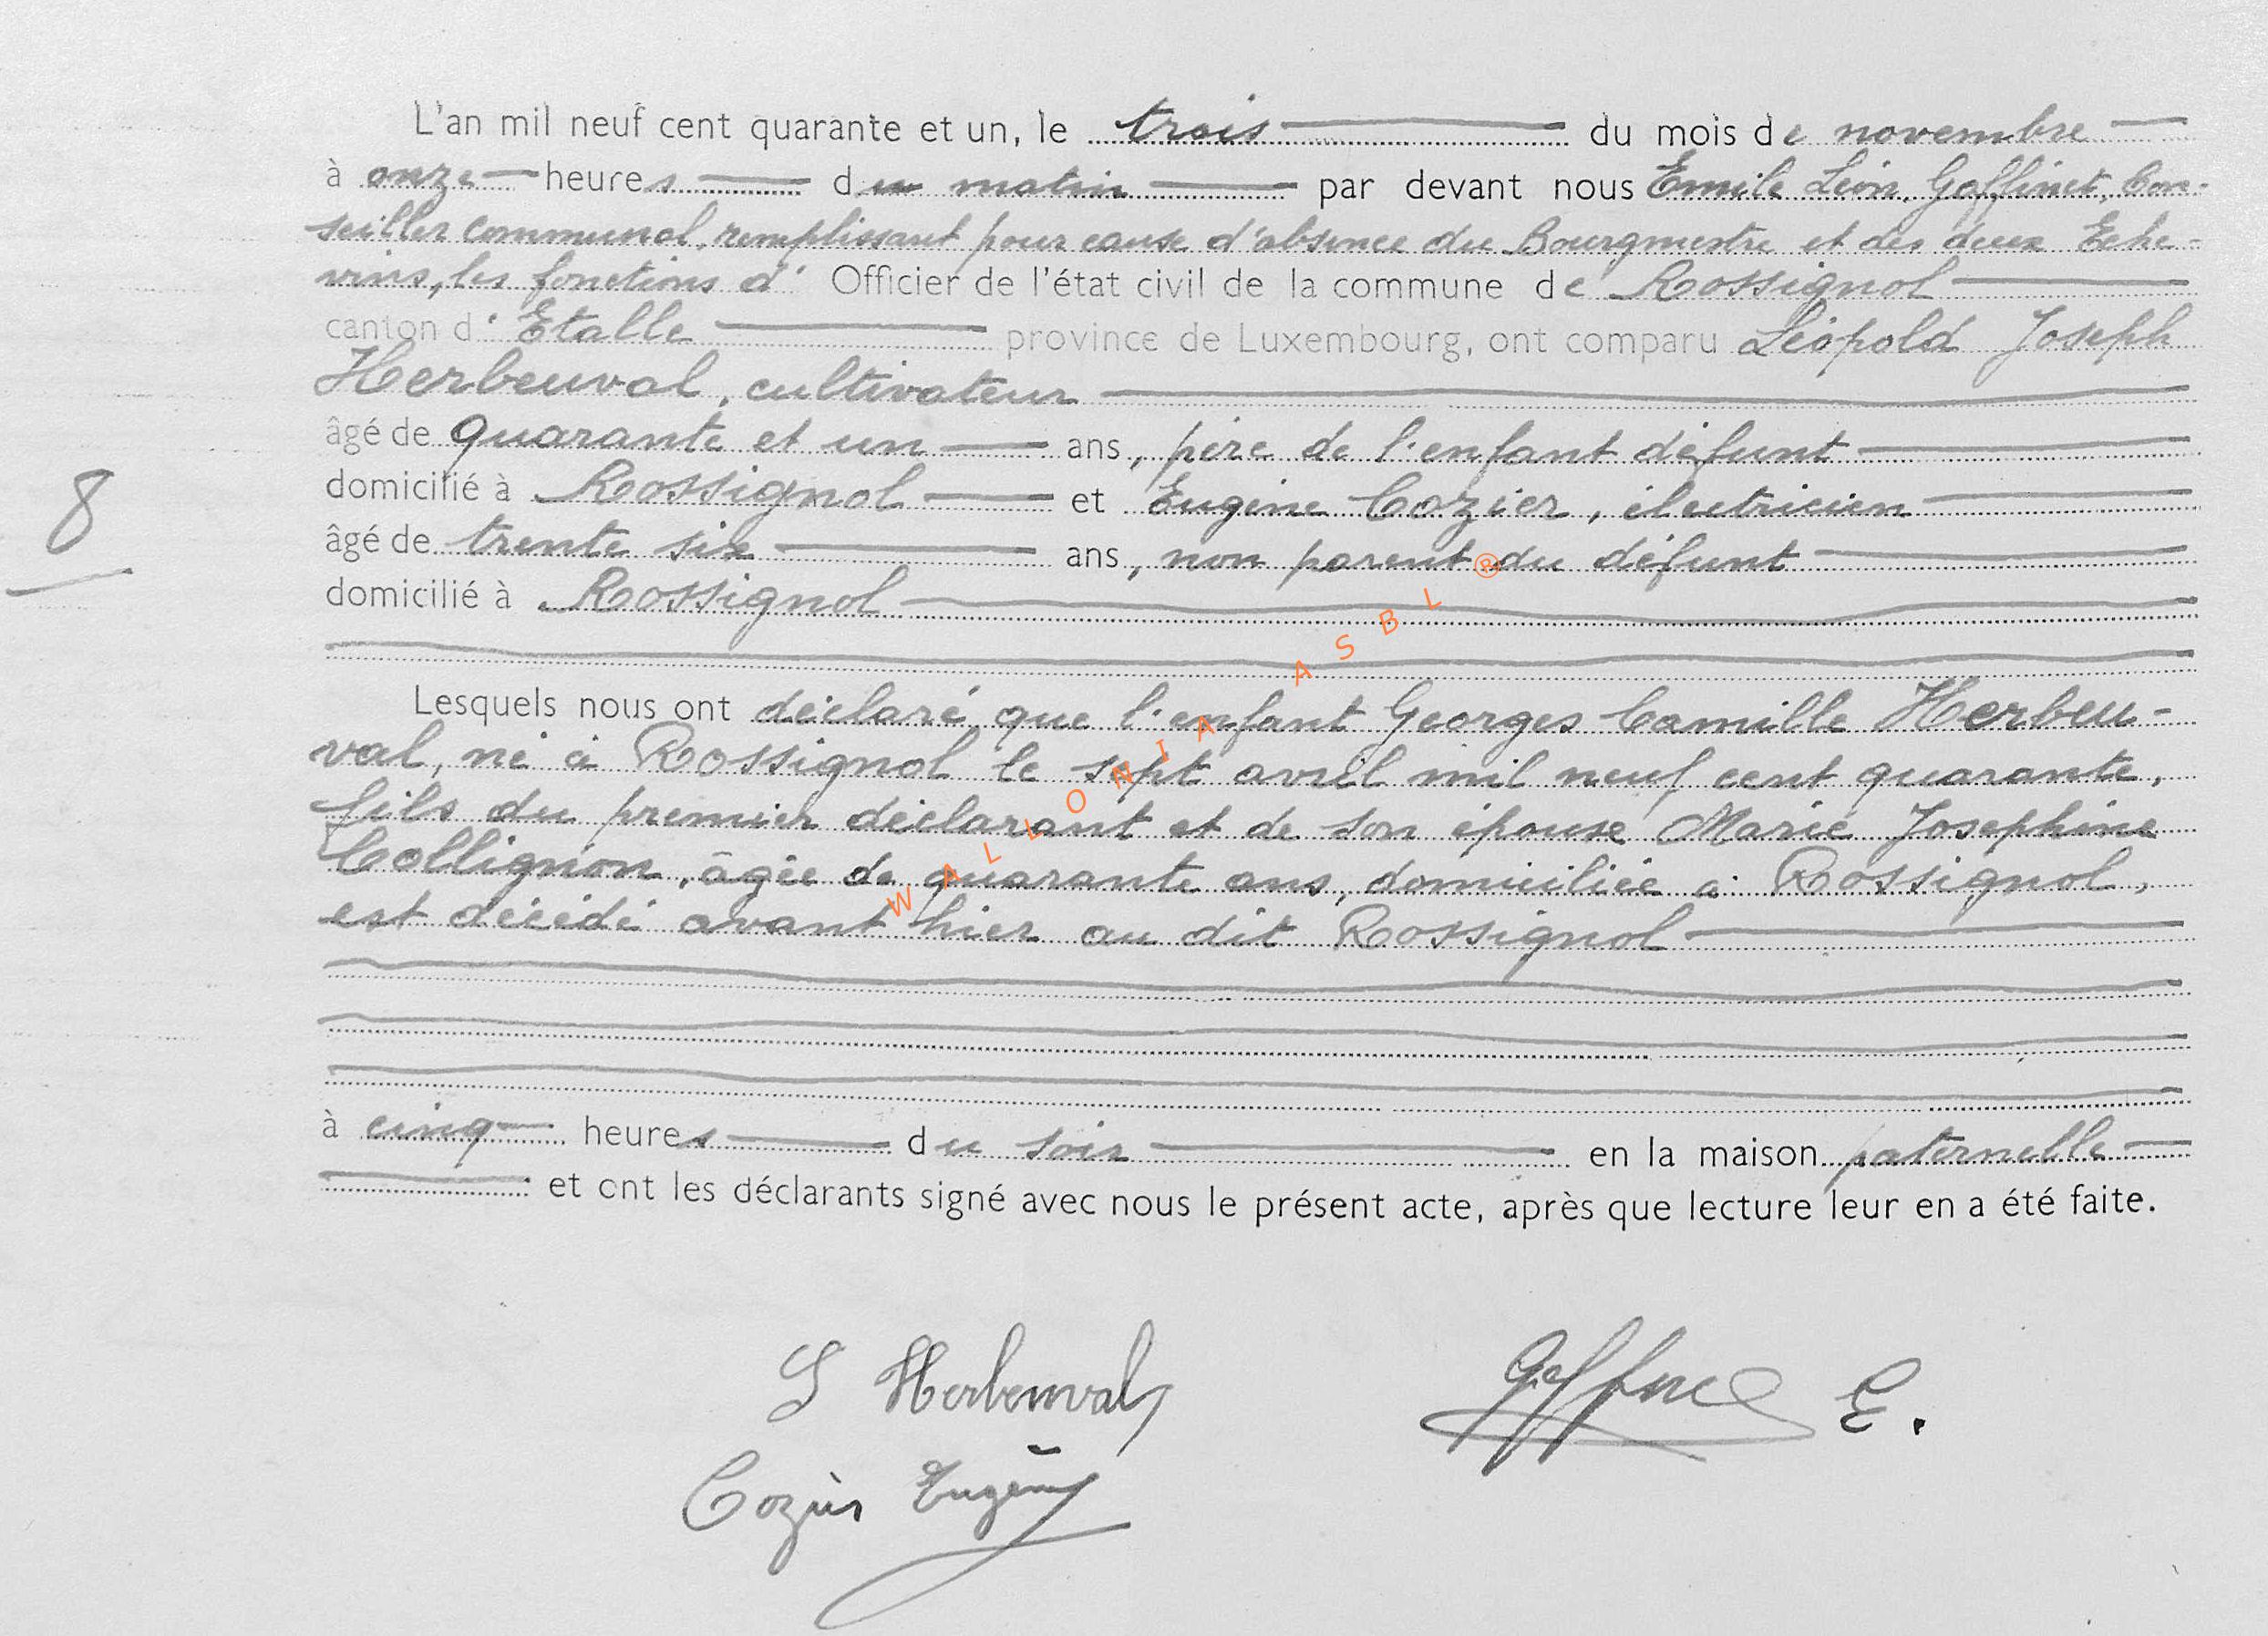 L'an mil neuf cent quarante et un, le trois du mois de novembre
à onze heures du matin par devant nous Emile Léon Goffinet, Con-
seiller communal, remplissant pour cause d'absence du Bourgmestre et des deux Eche-
vins, les fonctions d' Officier de l'état civil de la commune de Rossignol
canton d' Etalle province de Luxembourg, ont comparu Léopold Joseph
Herbeuval, cultivateur
âgé de quarante et un ans, père de l'enfant défunt
domicilié à Rossignol et Eugène Cozier, électricien
8
âgé de trente six ans, non parent du défunt
domicilié à Rossignol
Lesquels nous ont déclaré que l'enfant Georges Camille Herbeu-
val, né à Rossignol le sept avril mil neuf cent quarante,
fils du premier déclarant et de son épouse Marie Josephine
Collignon, âgée de quarante ans, domiciliée à Rossignol,
est décédé avant hier au dit Rossignol
à cinq heures du soir en la maison paternelle
et ont les déclarants signé avec nous le présent acte, après que lecture leur en a été faite.
L Herbeuval
Goffinet E.
Cozier Eugène
WALLONIA ASBL ®